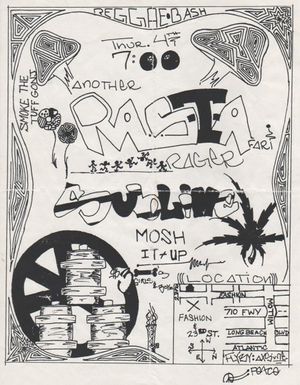 REGGAE·BASH
THUR. 4TH
7:00
ANOTHER
SMOKE THE
TUFF GONJ
RASTA
FARI
RAGER
SUBLIME
MOSH
IT UP
LOCATION
FASHION
710 FWY
LONG BEACH BLVD
ATLANTIC
FASHION
23RD ST.
N
W
E
S